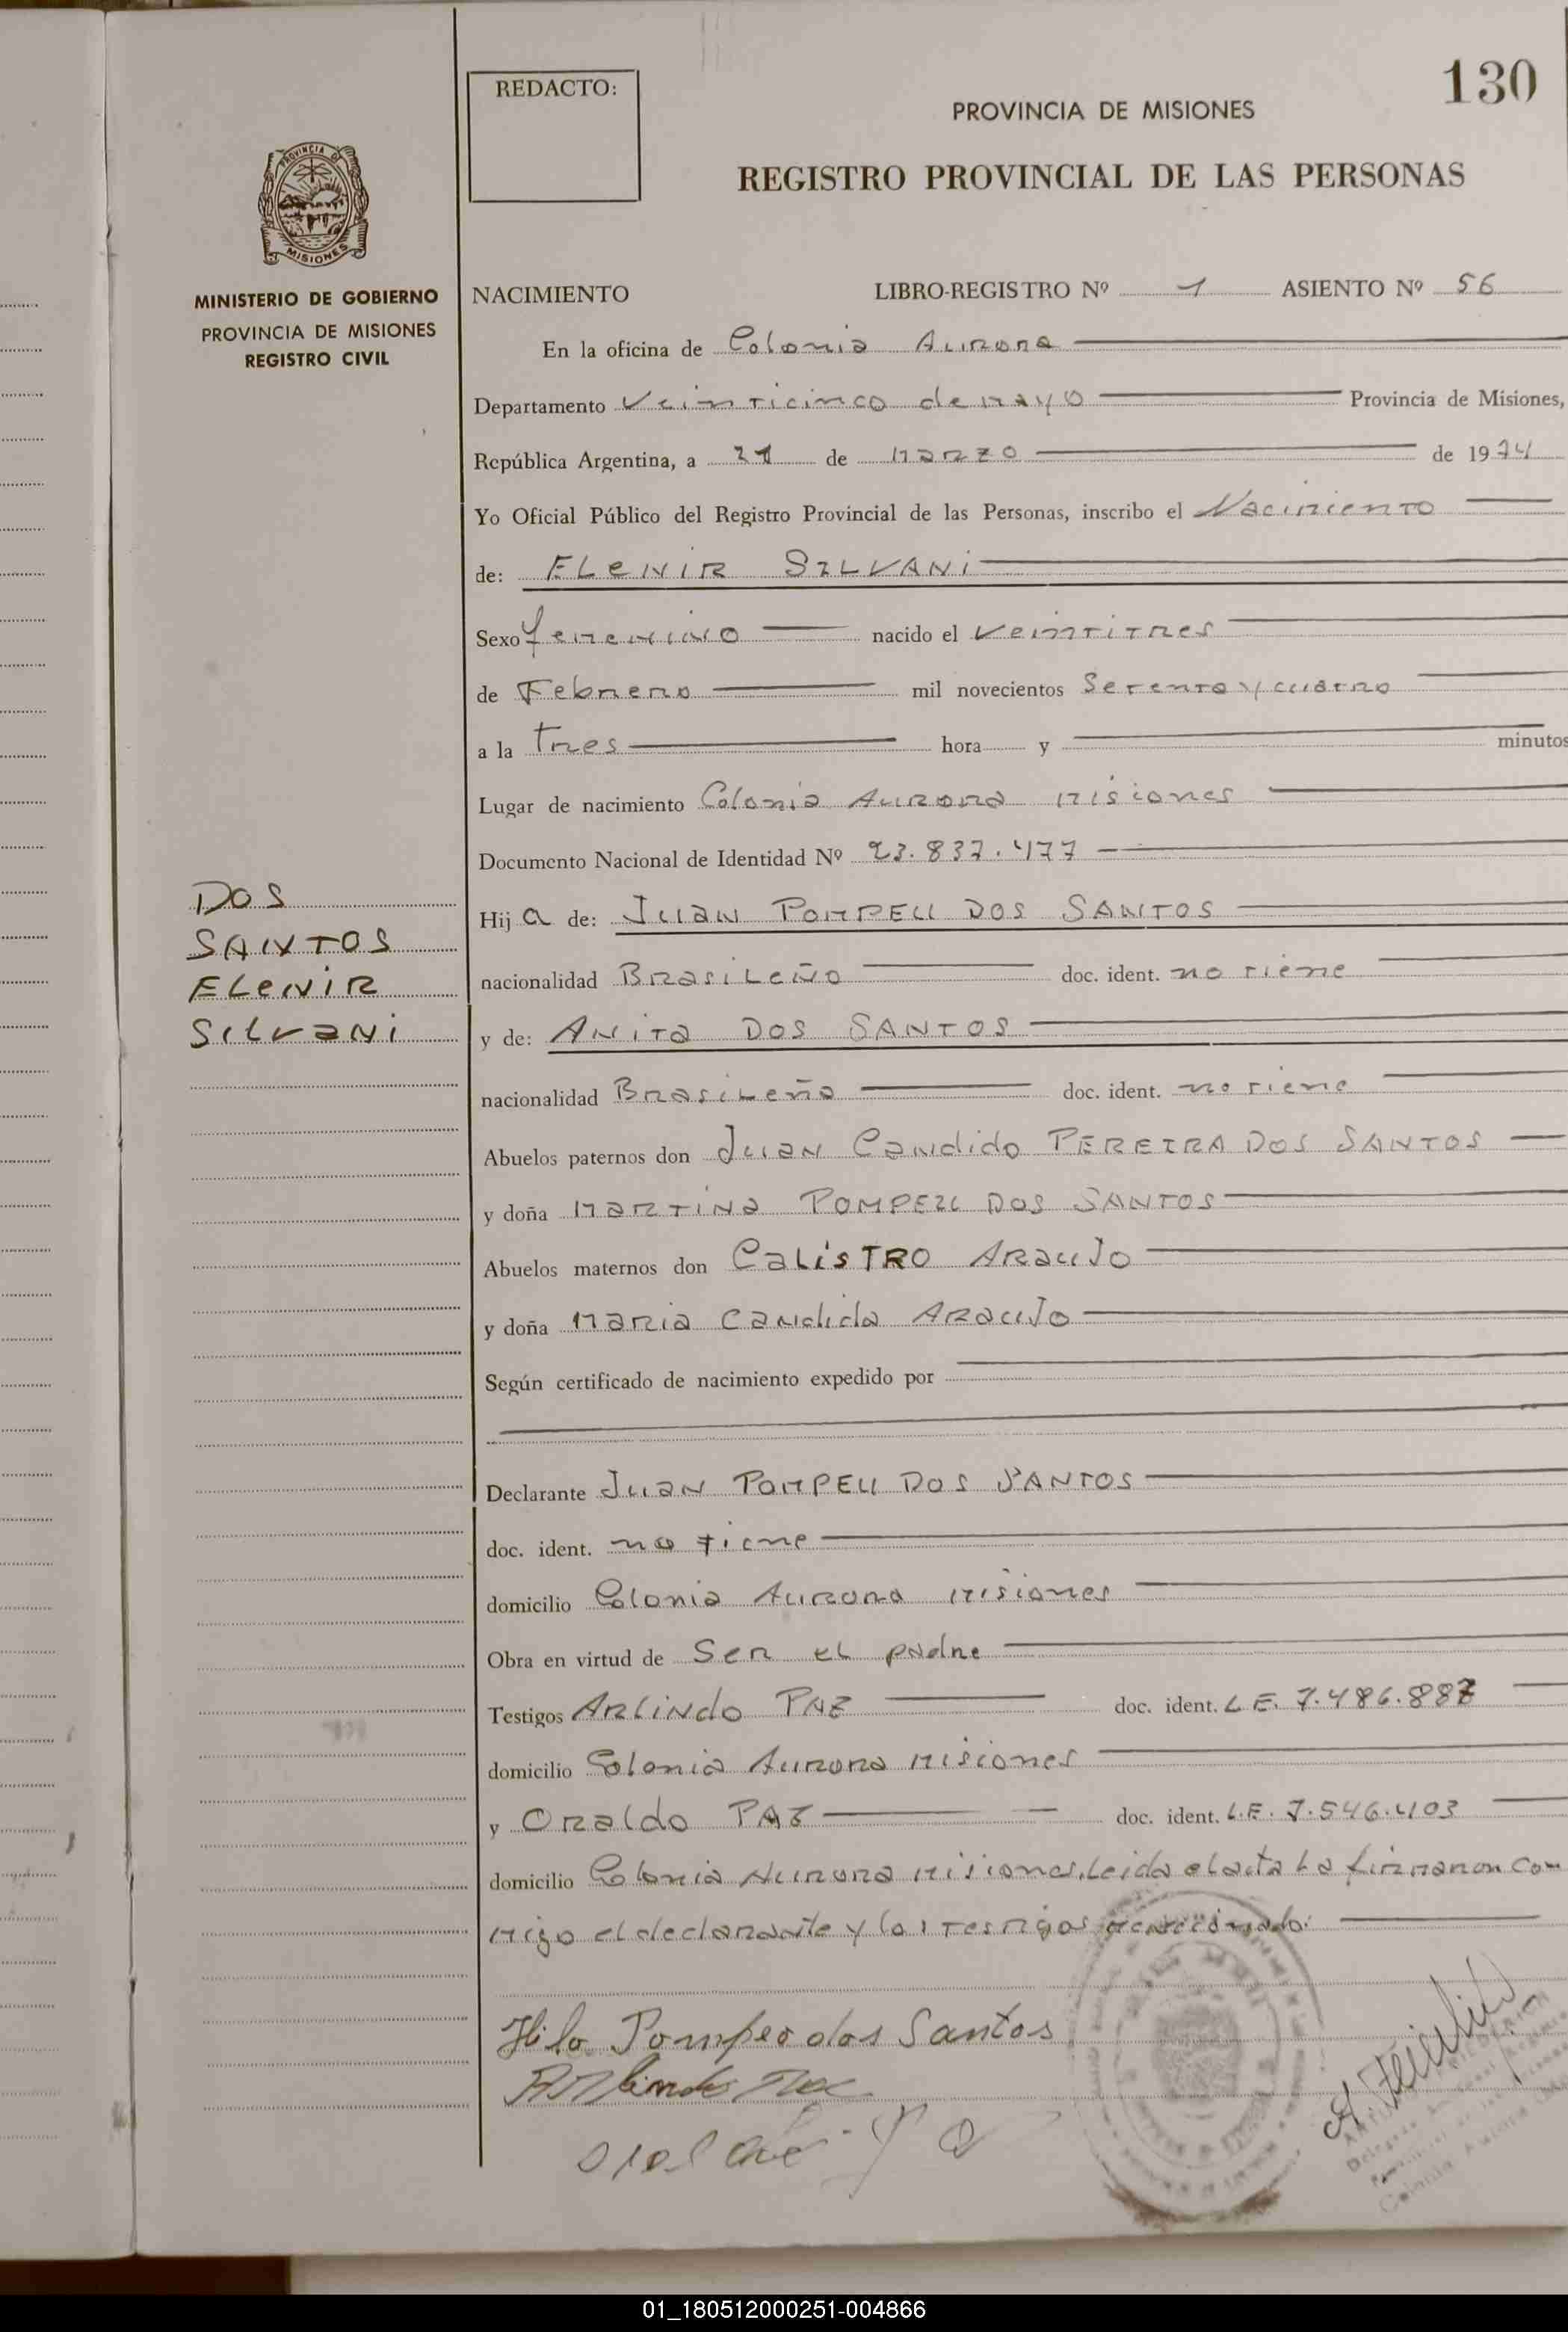 130
REDACTO:
PROVINCIA DE MISIONES
REGISTRO PROVINCIAL DE LAS PERSONAS
PROVINCIA DE
MISIONES
MINISTERIO DE GOBIERNO
PROVINCIA DE MISIONES
REGISTRO CIVIL
NACIMIENTO LIBRO-REGISTRO Nº 1 ASIENTO Nº 56
En la oficina de Colonia Aurora
Departamento Veinticinco de mayo Provincia de Misiones,
República Argentina, a 21 de Marzo de 1974
Yo Oficial Público del Registro Provincial de las Personas, inscribo el Nacimiento
de: ELeNiR SILVANi
Sexo femenino nacido el veintitres
de Febrero mil novecientos Setenta y cuatro
a la tres hora y minutos
Lugar de nacimiento Colonia Aurora Misiones
Documento Nacional de Identidad Nº 23.837.477
DOS
SANTOS
ELeNiR
SiLvaNi
Hij a de: JuaN POMPEU DOS SANTOS
nacionalidad BrasiLeño doc. ident. no tiene
y de: ANiTa DOS SANTOS
nacionalidad BrasiLeña doc. ident. no tiene
Abuelos paternos don JuaN Candido PEREIRA DOS SANTOS
y doña MaRTiNa POMPEU DOS SANTOS
Abuelos maternos don CaLisTRO ARauJo
y doña Maria Candida ARauJo
Según certificado de nacimiento expedido por
Declarante JuaN POMPEU DOS SANTOS
doc. ident. no tiene
domicilio Colonia Aurora Misiones
Obra en virtud de Ser eL padre
Testigos ARLiNdo PAZ doc. ident. L.E. 7.486.887
domicilio Colonia Aurora Misiones
y ORaldo PAZ doc. ident. L.E. 7.546.403
domicilio Colonia Aurora Misiones. Leida el acta La firmaron con
migo el declarante y los testigos mencionado.
Hilo Pompeo dos Santos
Colonia Aurora
01_180512000251-004866